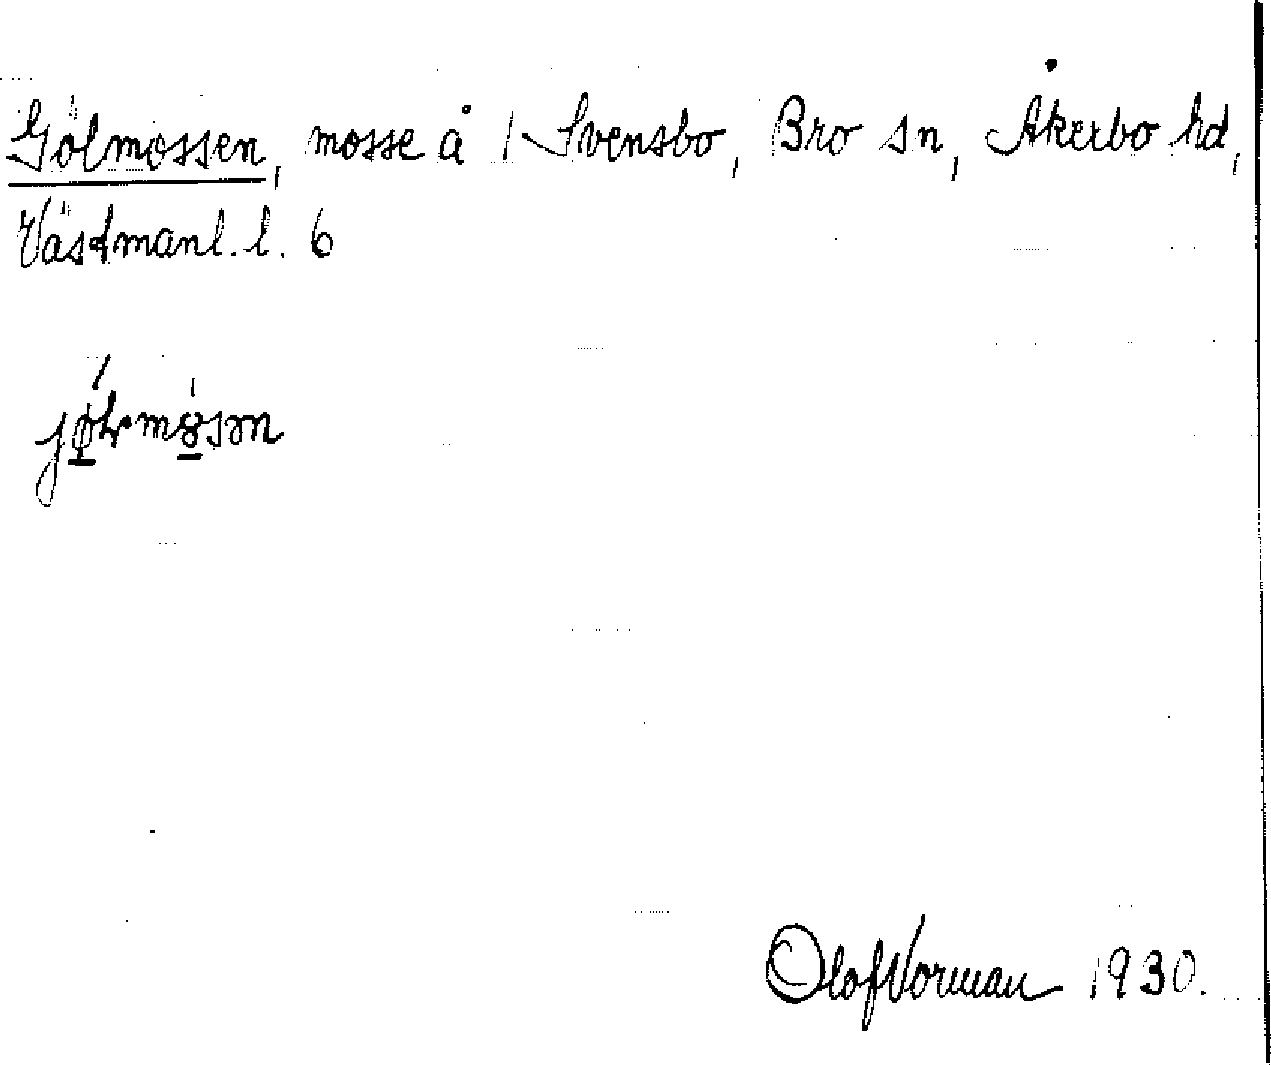 Gölmossen, mosse å 1 Svensbo, Bro sn, Åkerbo hd,
Västmanl. l. 6
Olof Norman 1930.